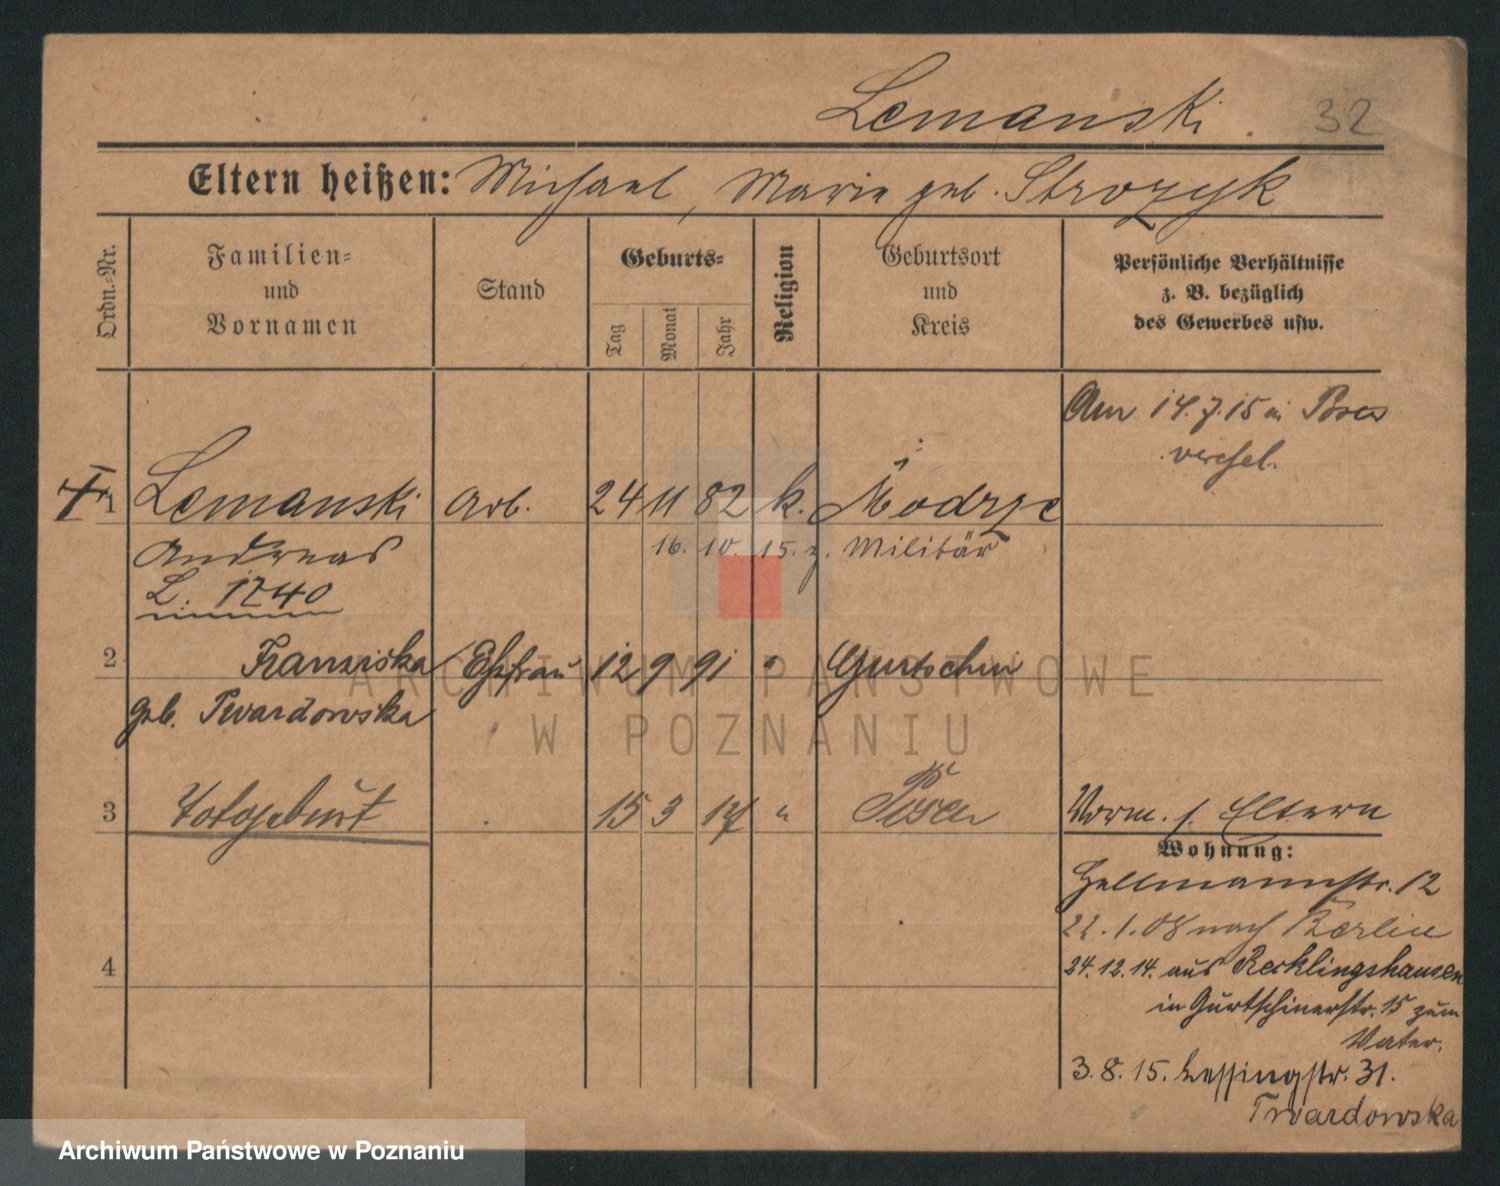 Lemanski. 32
Eltern heißen: Michael, Marie geb. Strozyk
Ordn.-Nr.
Familien- und Vornamen
Stand
Geburts-
Tag
Monat
Jahr
Religion
Geburtsort und Kreis
Persönliche Verhältnisse
z. B. bezüglich
des Gewerbes usw.
Am 14.7.15 in Posen
verehel.
1 Lemanski Arb. 24 11 82 k. Modrze
Andreas 16. 10. 15. z. Militär
L. 1740
2 Franziska Ehefrau 12 9 91 " Gurtschin
geb. Twardowska
3 Totgeburt 15 3 17 " Posen
Vorm. s. Eltern
Wohnung:
Hellmannstr. 12
22.1.08 nach Berlin
4
24.12.14. aus Recklingshausen
in Gurtschinerstr. 15 zum
Vater.
3.8.15. Lessingstr. 31.
Twardowska
ARCHIWUM PAŃSTWOWE
W POZNANIU
Archiwum Państwowe w Poznaniu